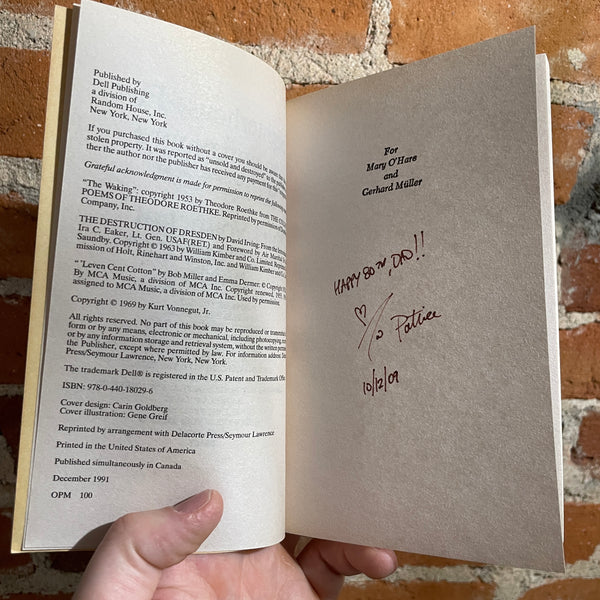 Published by
Dell Publishing
a division of
Random House, Inc.
New York, New York
If you purchased this book without a cover you should be aware that
stolen property. It was reported as "unsold and destroyed" to the
ther the author nor the publisher has received any payment for this
Grateful acknowledgment is made for permission to reprint the following
"The Waking": copyright 1953 by Theodore Roethke from THE
POEMS OF THEODORE ROETHKE. Reprinted by permission of
Company, Inc.
THE DESTRUCTION OF DRESDEN by David Irving: From the
Ira C. Eaker, Lt. Gen. USAF(RET) and Foreword by Air Marshal
Saundby. Copyright © 1963 by William Kimber and Co. Limited.
mission of Holt, Rinehart and Winston, Inc. and William Kimber and
"'Leven Cent Cotton" by Bob Miller and Emma Dermer: Copyright ©
By MCA Music, a division of MCA Inc. Copyright renewed,
assigned to MCA Music, a division of MCA Inc. Used by permission.
Copyright © 1969 by Kurt Vonnegut, Jr.
All rights reserved. No part of this book may be reproduced or
form or by any means, electronic or mechanical, including photocopying,
or by any information storage and retrieval system, without the written
the Publisher, except where permitted by law. For information address:
Press/Seymour Lawrence, New York, New York.
The trademark Dell® is registered in the U.S. Patent and Trademark
ISBN: 978-0-440-18029-6
Cover design: Carin Goldberg
Cover illustration: Gene Greif
Reprinted by arrangement with Delacorte Press/Seymour Lawrence
Printed in the United States of America
Published simultaneously in Canada
December 1991
OPM 100
For
Mary O'Hare
and
Gerhard Müller
HAPPY 80TH, DAD!!
Patrice
10/12/09